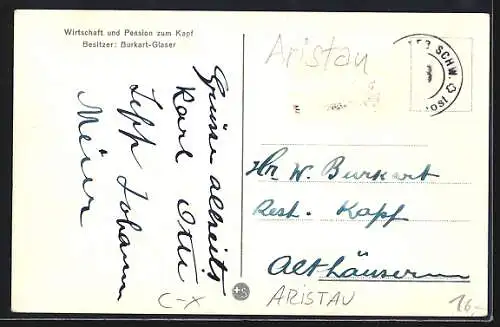 Wirtschaft und Pension zum Kapf
Besitzer: Burkart-Glaser
Aristau
SCHW.
Grüsse allseits
Karl Otti
Sepp Johann
Meier
Hr. W. Burkart
Rest. Kapf
Althäusern
C-X
+S
ARISTAU
16,-